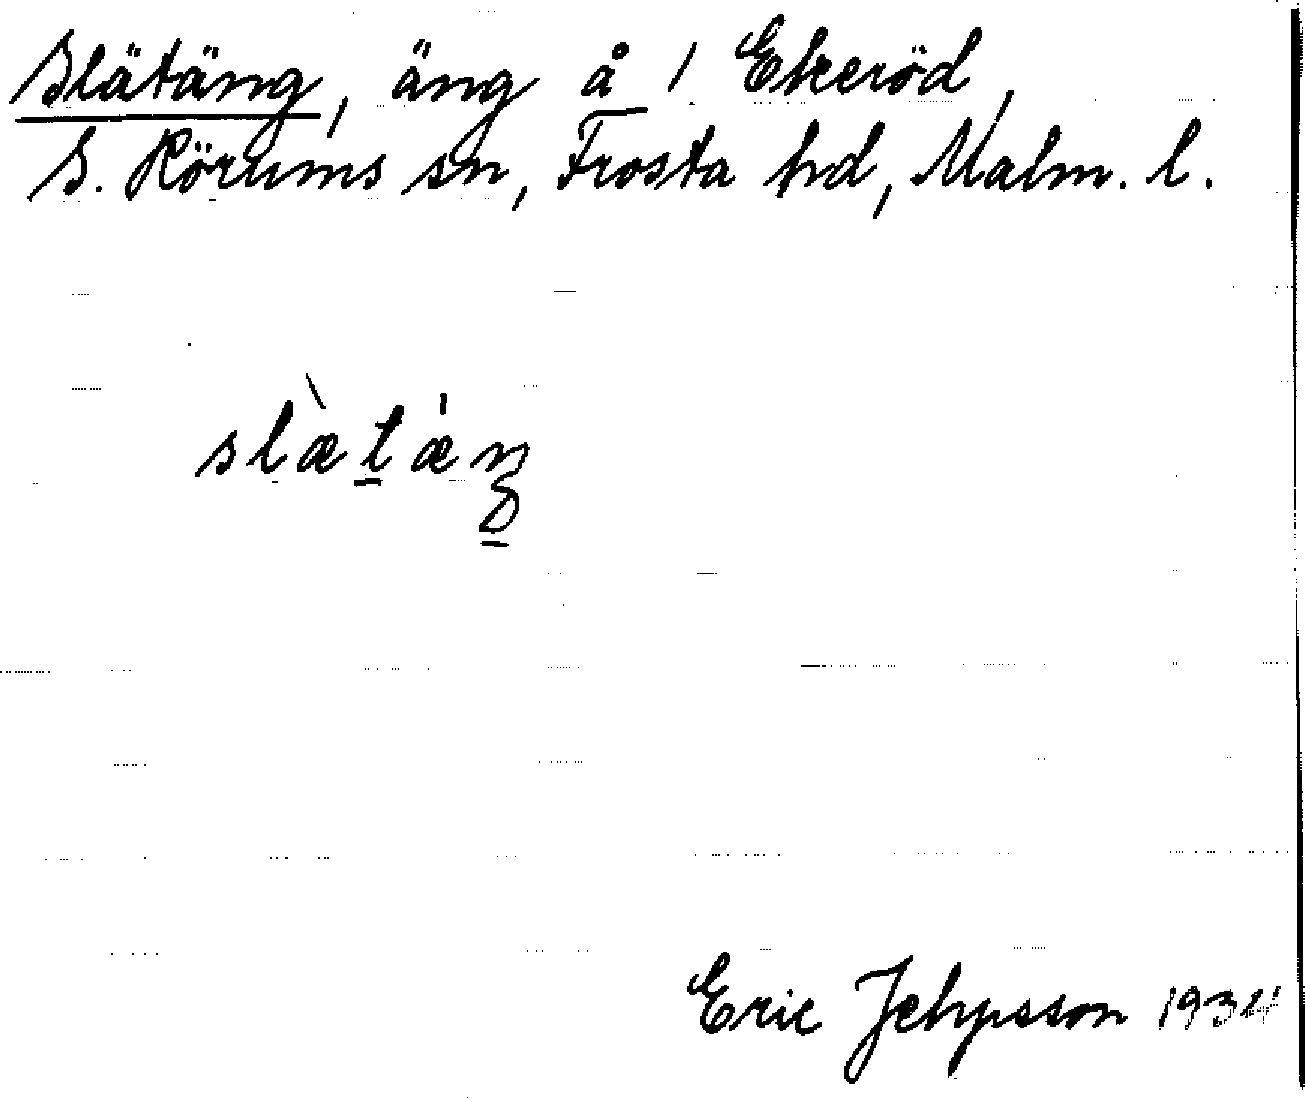 Slätäng, äng å 1 Ekeröd,
S. Rörums sn, Frosta hd, Malm. l.
slætæŋ
Eric Jepsson 1934